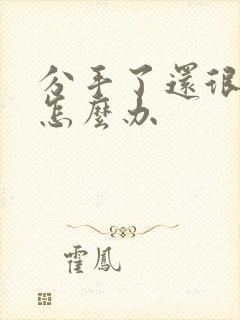 分手了還很
怎麼办
霍鳳